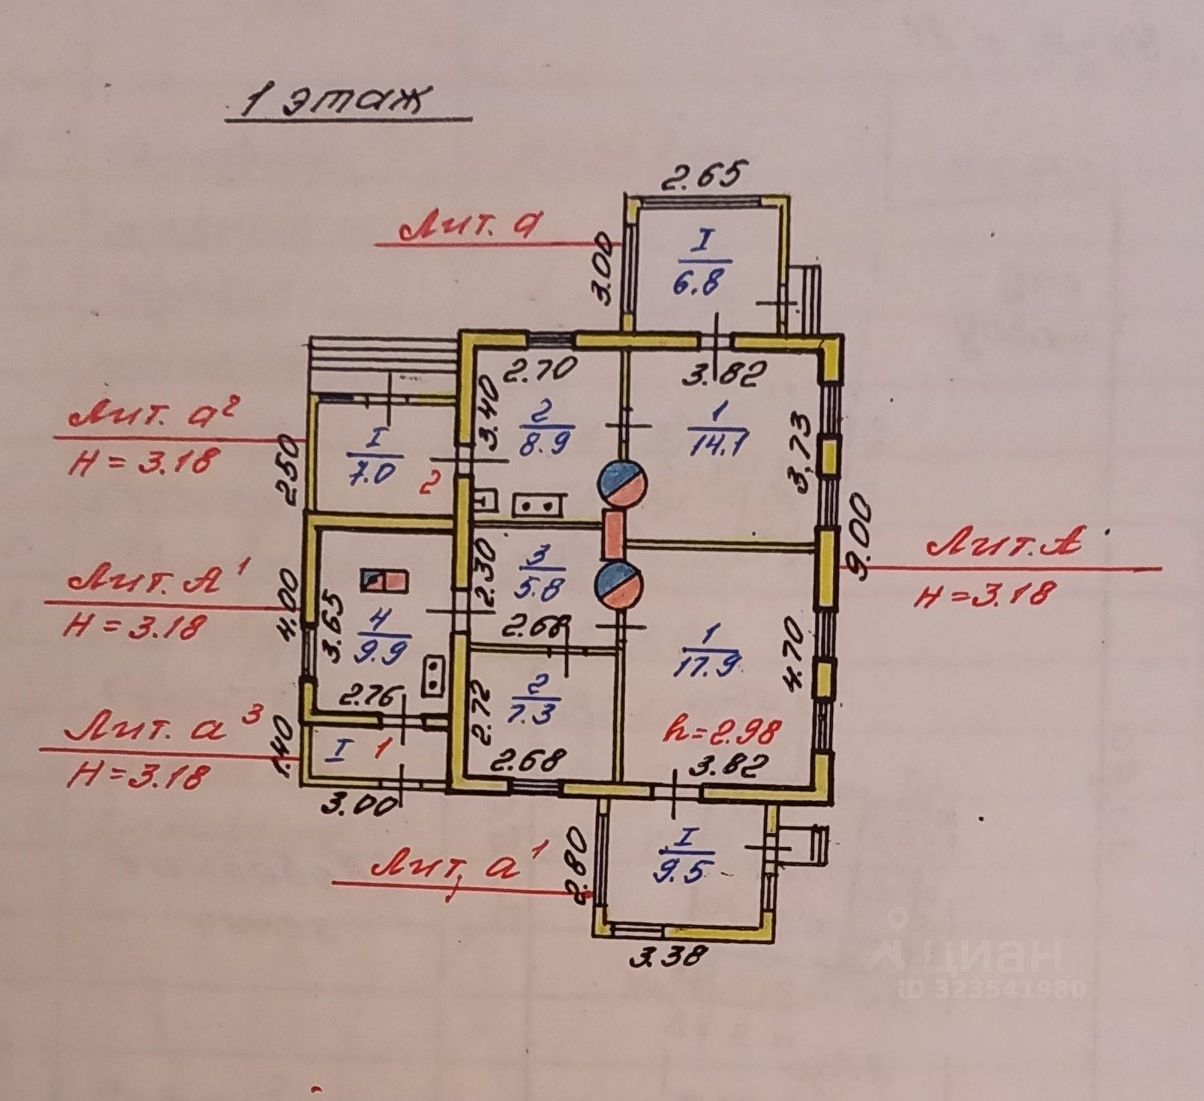 1 этаж
2.65
Лит. а
3.00
I
6.8
2.70
3.82
3.40
2
8.9
1
14.1
3.73
Лит. а²
Н = 3.18
2.50
I
7.0
2
9.00
Лит. А
Н = 3.18
Лит. А¹
Н = 3.18
4.00
3.65
4
9.9
2.76
2.30
3
5.8
2.68
1
17.9
4.70
h = 2.98
3.82
2.72
2
7.3
2.68
Лит. а³
Н = 3.18
1.40
I
1
3.00
Лит. а¹
2.80
I
9.5
3.38
циан
ID 323541980